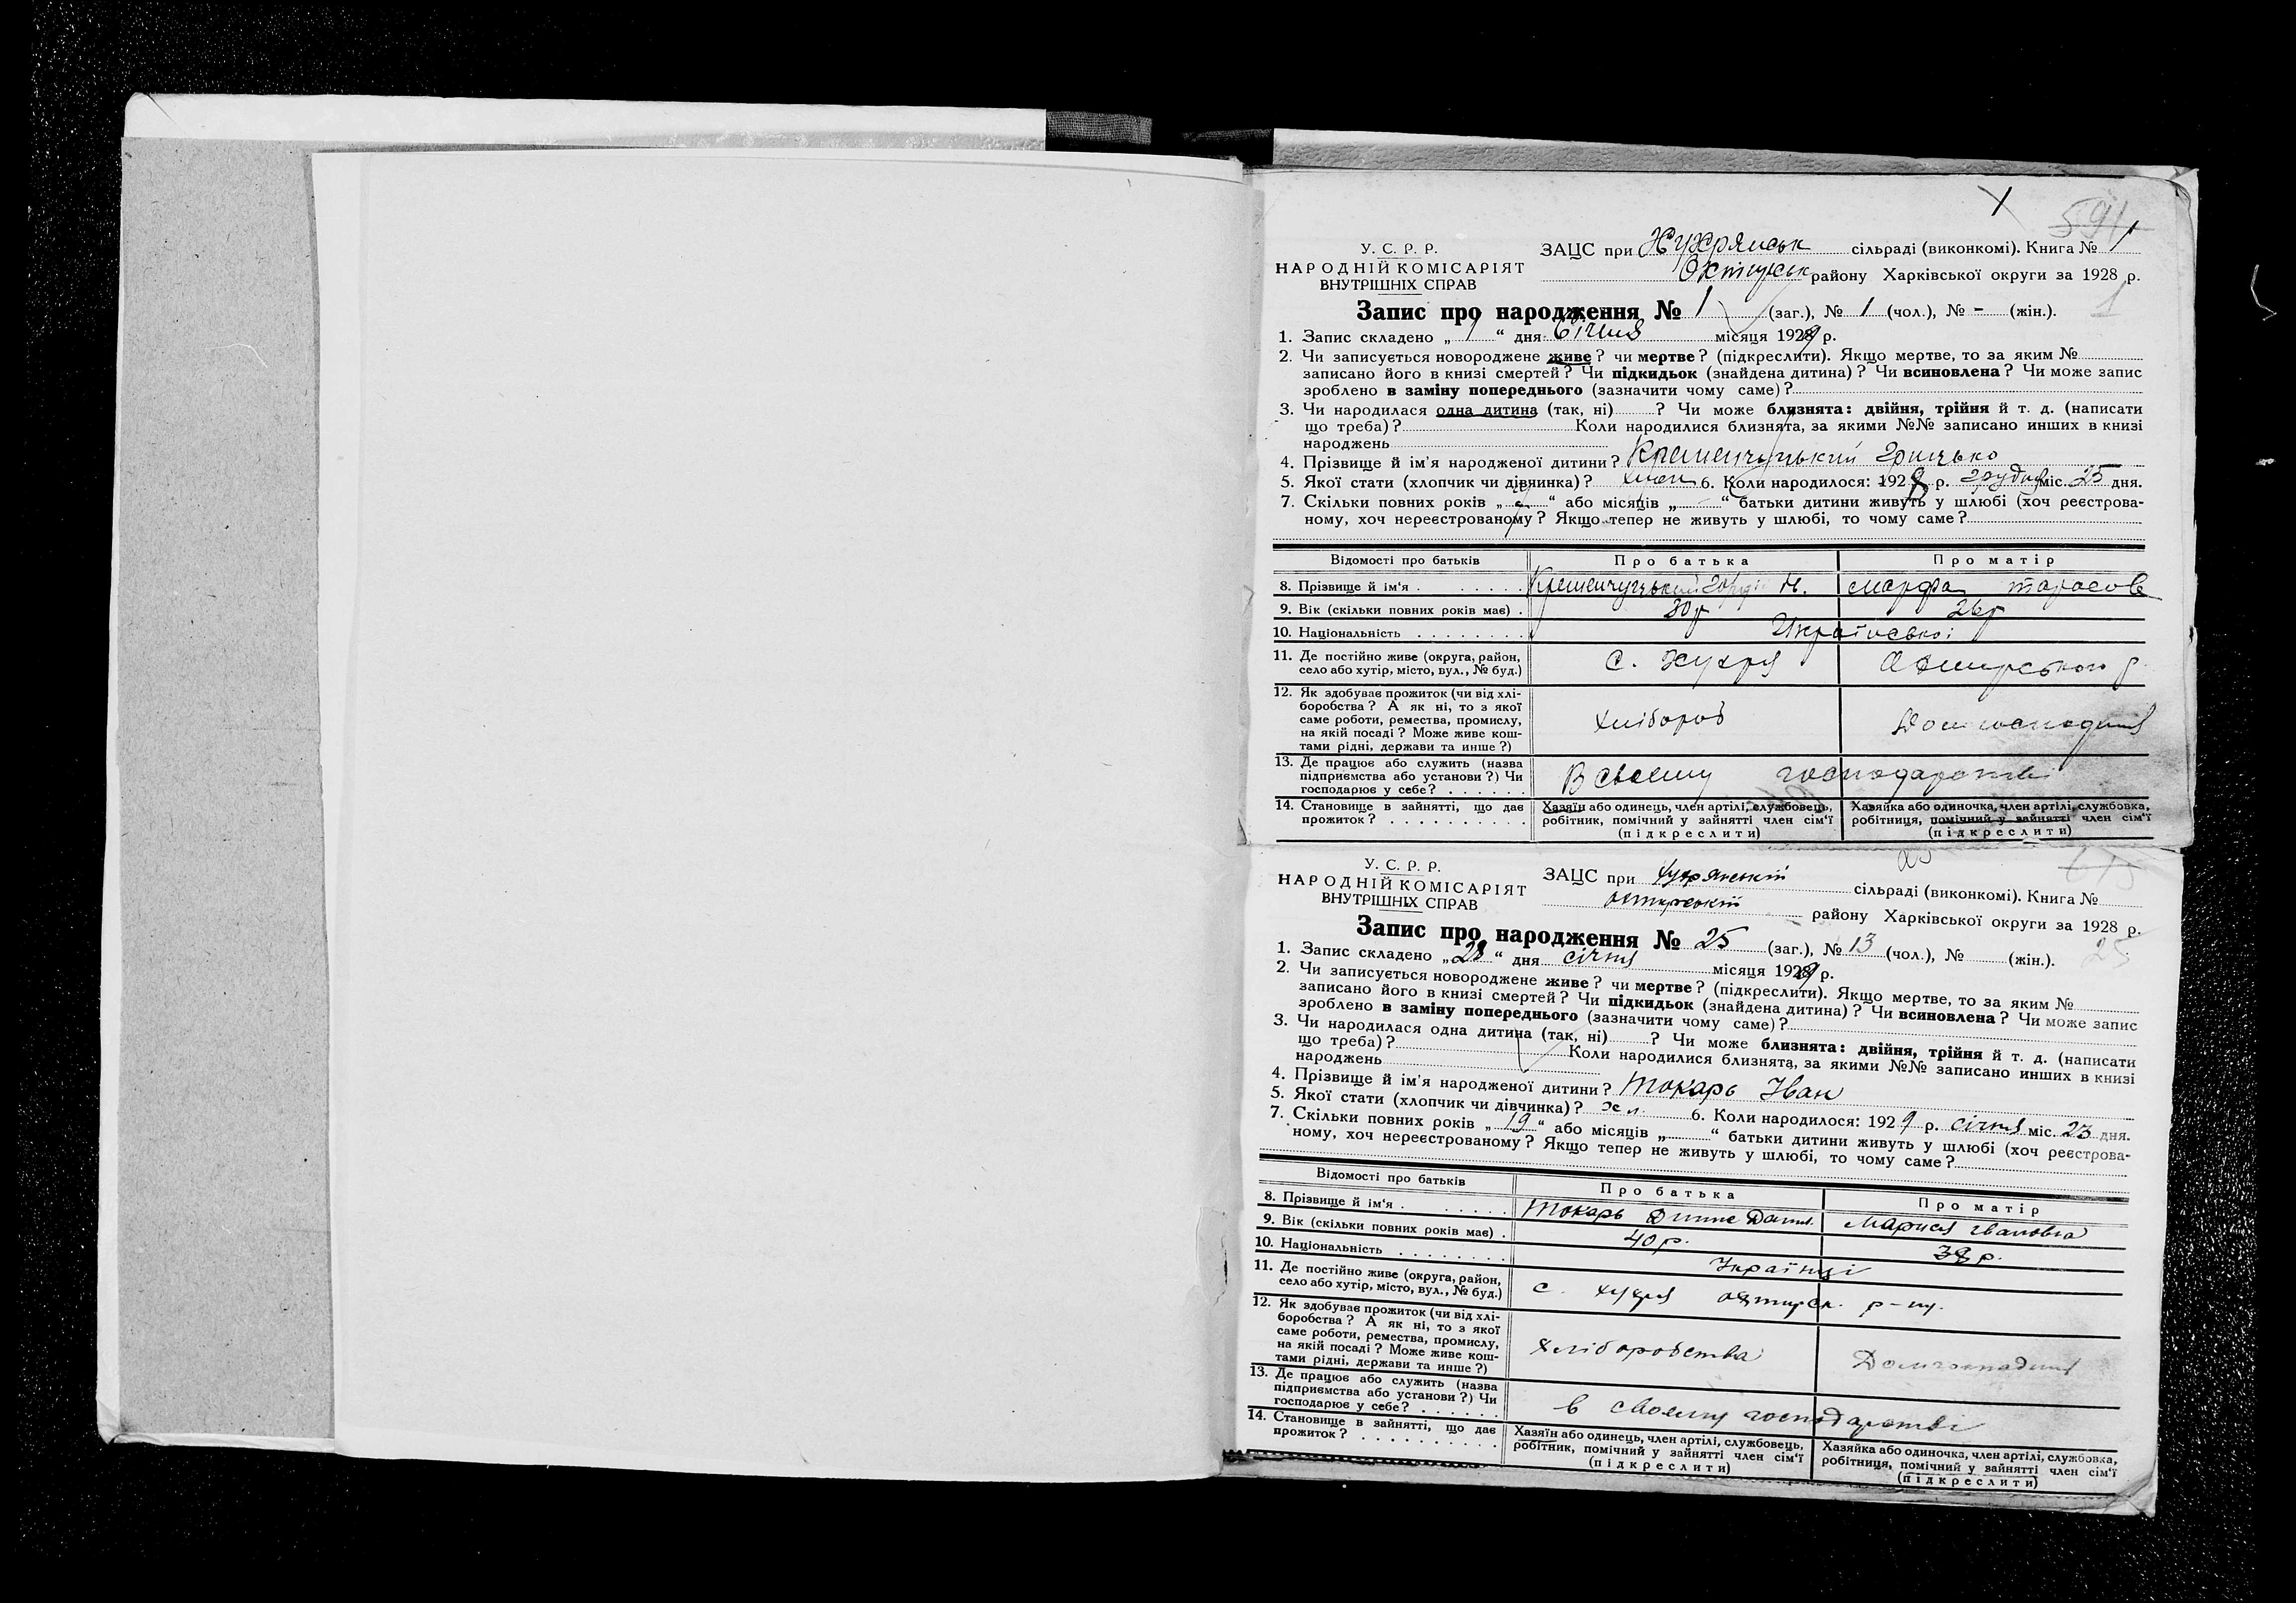 У. С. Р. Р.
НАРОДНІЙ КОМІСАРІЯТ
ВНУТРІШНІХ СПРАВ
ЗАЦС при Хухрянськ сільраді (виконкомі). Книга № 1
району Харківської округи за 1928 р.
1
Запис про народження № 1 (заг.), № 1 (чол.), № - (жін.).
1. Запис складено „ 1 “ дня Січня місяця 1929 р.
2. Чи записується новороджене живе? чи мертве? (підкреслити). Якщо мертве, то за яким №
записано його в книзі смертей? Чи підкидьок (знайдена дитина)? Чи всиновлена? Чи може запис
зроблено в заміну попереднього (зазначити чому саме)?
3. Чи народилася одна дитина (так, ні) ? Чи може близнята: двійня, трійня й т. д. (написати
що треба)? Коли народилися близнята, за якими №№ записано инших в книзі
народжень
4. Прізвище й ім'я народженої дитини? Кременчуцький Грицько
5. Якої стати (хлопчик чи дівчинка)? хлоп 6. Коли народилося: 1928 р. грудня міс. 25 дня.
7. Скільки повних років „ “ або місяців „ - “ батьки дитини живуть у шлюбі (хоч реєстрова-
ному, хоч нереєстрованому? Якщо тепер не живуть у шлюбі, то чому саме?
Відомості про батьків Про батька Про матір
8. Прізвище й ім'я Кременчуцький Марфа Тарасов
9. Вік (скільки повних років має) 30 р 26 р
10. Національність Української
11. Де постійно живе (округа, район,
село або хутір, місто, вул., № буд.) с. Хухря Охтирського р.
12. Як здобуває прожиток (чи від хлі-
боробства? А як ні, то з якої
саме роботи, ремества, промислу,
на якій посаді? Може живе кош-
тами рідні, держави та инше?) Хлібороб Домгосподиня
13. Де працює або служить (назва
підприємства або установи?) Чи
господарює у себе? В своєму господарстві
14. Становище в зайнятті, що дає
прожиток?
Хазяїн або одинець, член артілі, службовець,
робітник, помічний у зайнятті член сім'ї
(підкреслити)
Хазяйка або одиночка, член артілі, службовка,
робітниця, помічний у зайнятті член сім'ї
(підкреслити)
У. С. Р. Р.
НАРОДНІЙ КОМІСАРІЯТ
ВНУТРІШНІХ СПРАВ
ЗАЦС при Хухрянській сільраді (виконкомі). Книга №
району Харківської округи за 1928 р.
25
Запис про народження № 25 (заг.), № 13 (чол.), № (жін.).
1. Запис складено „ 28 “ дня січня місяця 1929 р.
2. Чи записується новороджене живе? чи мертве? (підкреслити). Якщо мертве, то за яким №
записано його в книзі смертей? Чи підкидьок (знайдена дитина)? Чи всиновлена? Чи може запис
зроблено в заміну попереднього (зазначити чому саме)?
3. Чи народилася одна дитина (так, ні) ? Чи може близнята: двійня, трійня й т. д. (написати
що треба)? Коли народилися близнята, за якими №№ записано инших в книзі
народжень
4. Прізвище й ім'я народженої дитини? Токарь Іван
5. Якої стати (хлопчик чи дівчинка)? хл. 6. Коли народилося: 1929 р. січня міс. 23 дня.
7. Скільки повних років „ 19 “ або місяців „ “ батьки дитини живуть у шлюбі (хоч реєстрова-
ному, хоч нереєстрованому? Якщо тепер не живуть у шлюбі, то чому саме?
Відомості про батьків Про батька Про матір
8. Прізвище й ім'я Токарь Марися Івановна
9. Вік (скільки повних років має) 40 р. 38 р.
10. Національність Українці
11. Де постійно живе (округа, район,
село або хутір, місто, вул., № буд.) с. Хухря охтирск. р-ну.
12. Як здобуває прожиток (чи від хлі-
боробства? А як ні, то з якої
саме роботи, ремества, промислу,
на якій посаді? Може живе кош-
тами рідні, держави та инше?) Хліборобства Домгосподиня
13. Де працює або служить (назва
підприємства або установи?) Чи
господарює у себе? в своєму господарстві
14. Становище в зайнятті, що дає
прожиток?
Хазяїн або одинець, член артілі, службовець,
робітник, помічний у зайнятті член сім'ї
(підкреслити)
Хазяйка або одиночка, член артілі, службовка,
робітниця, помічний у зайнятті член сім'ї
(підкреслити)